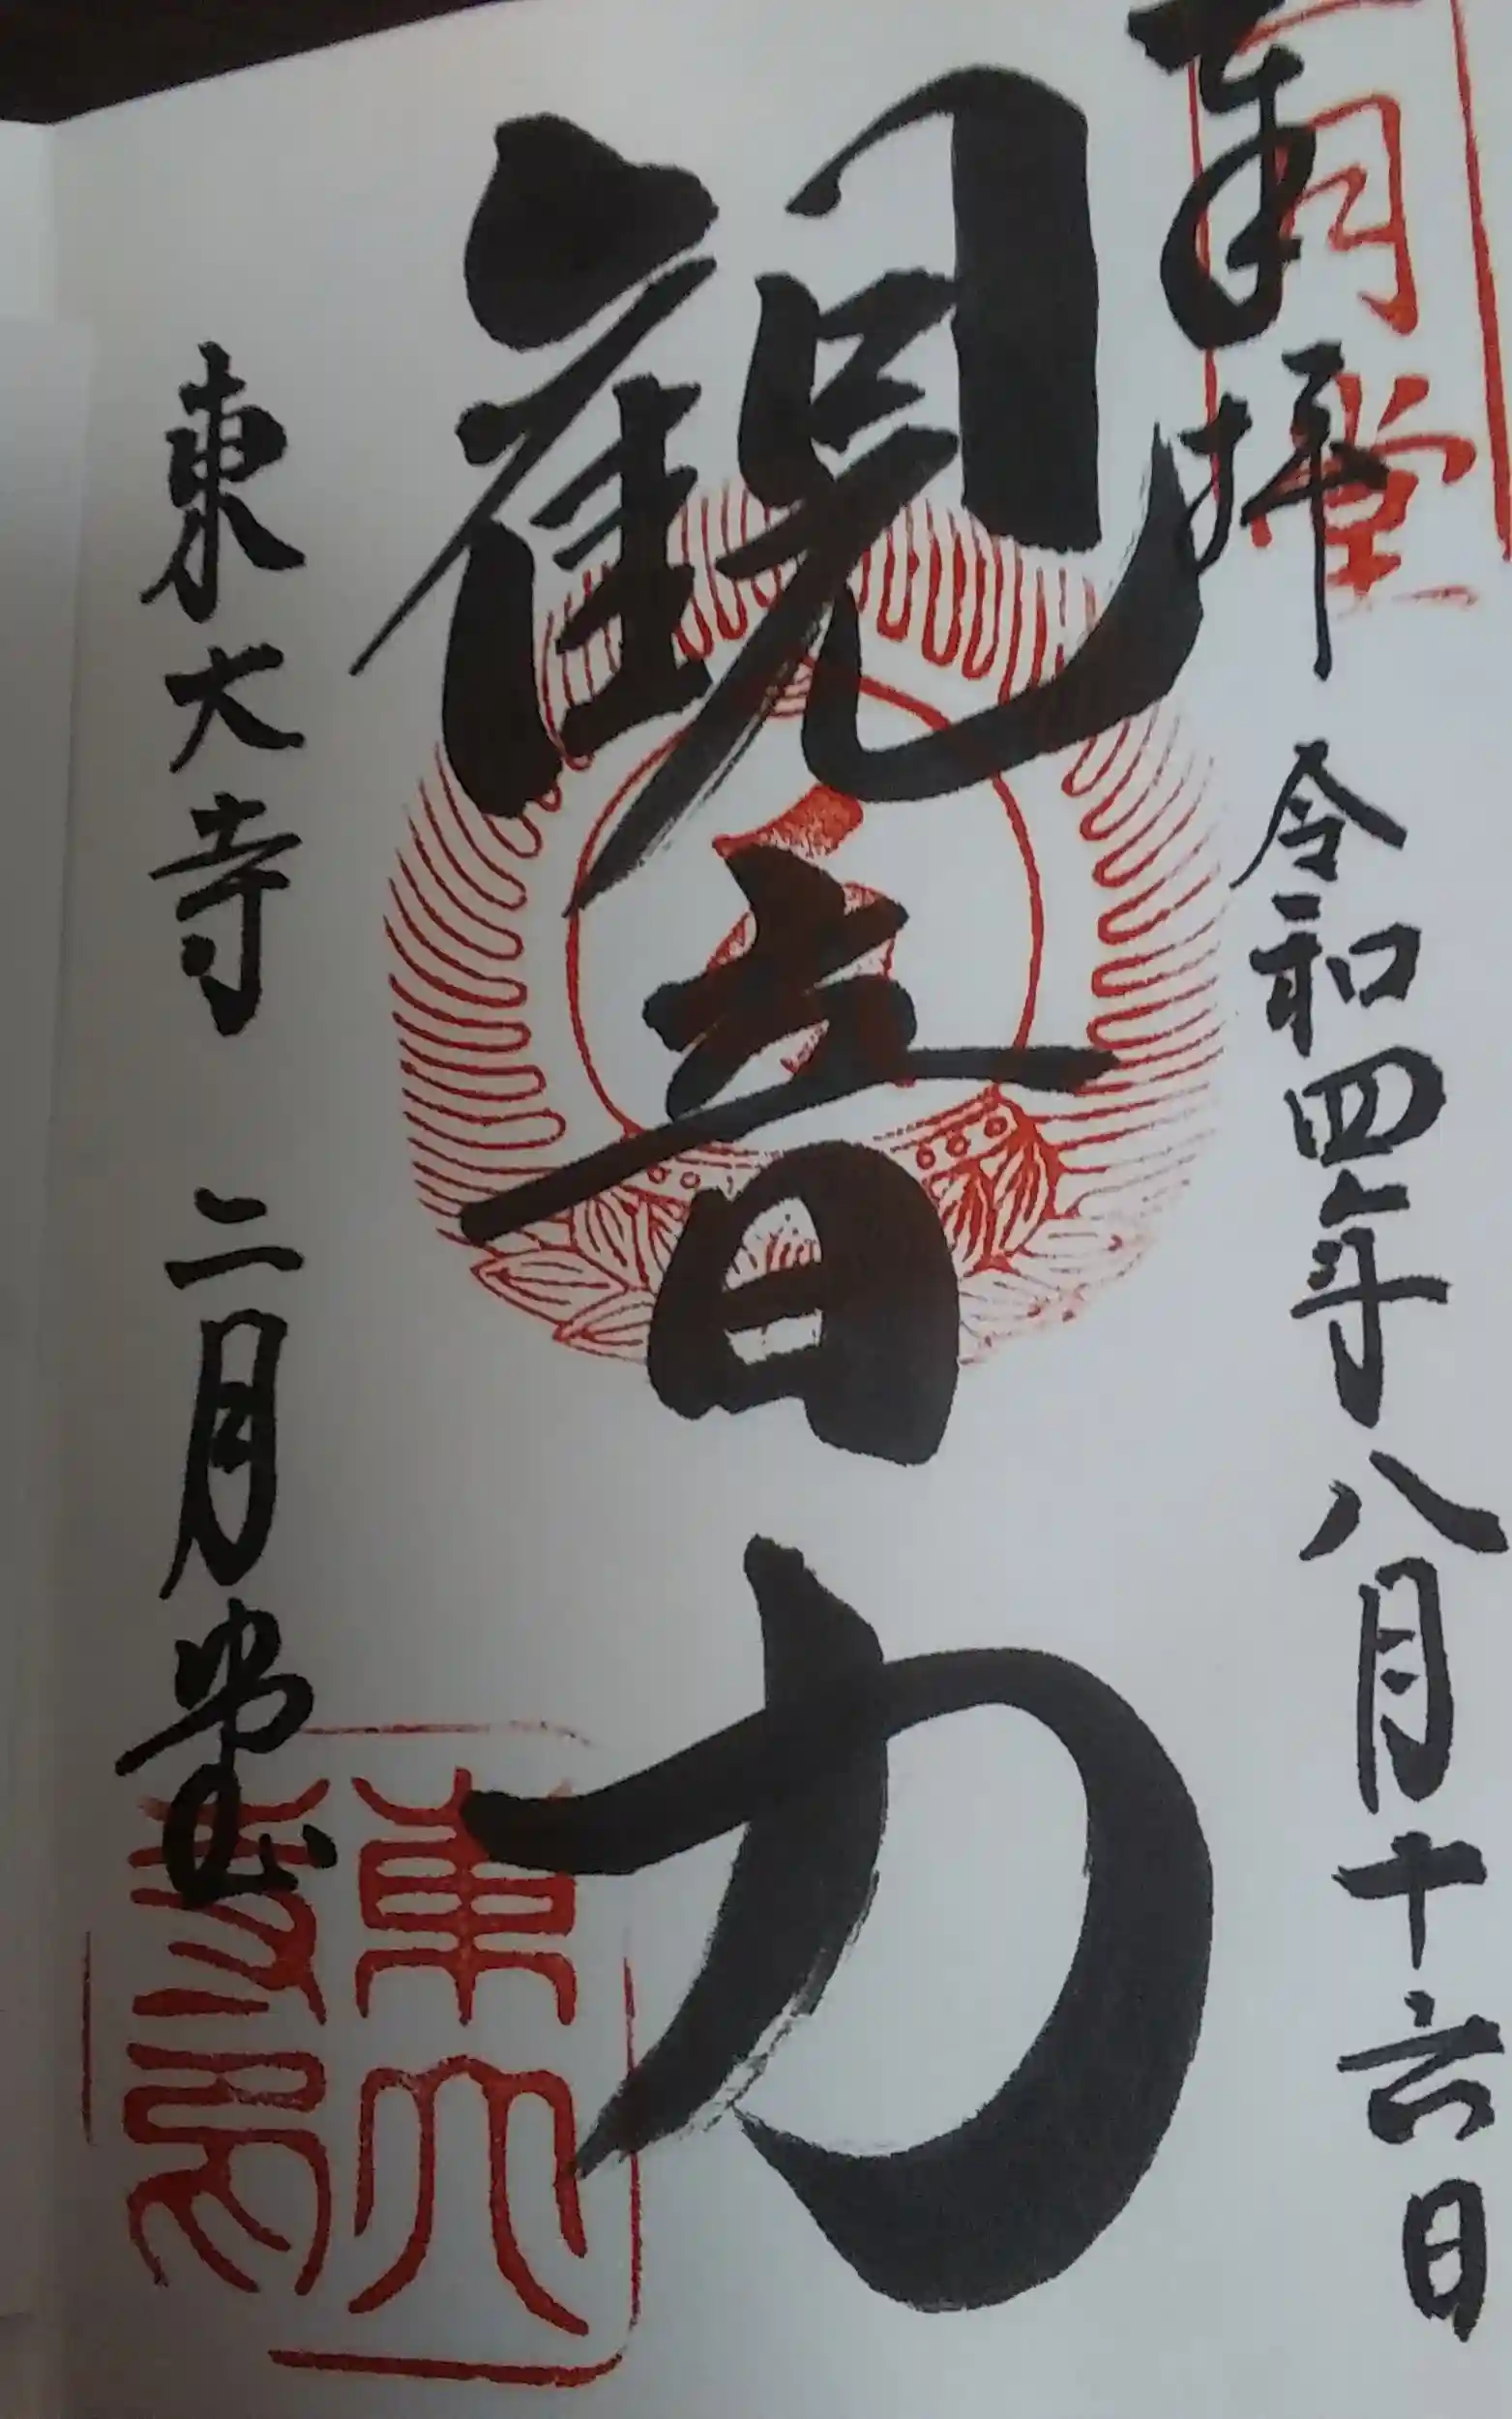 奉拝 令和四年八月十六日
観音力
東大寺 二月堂
月堂
東大